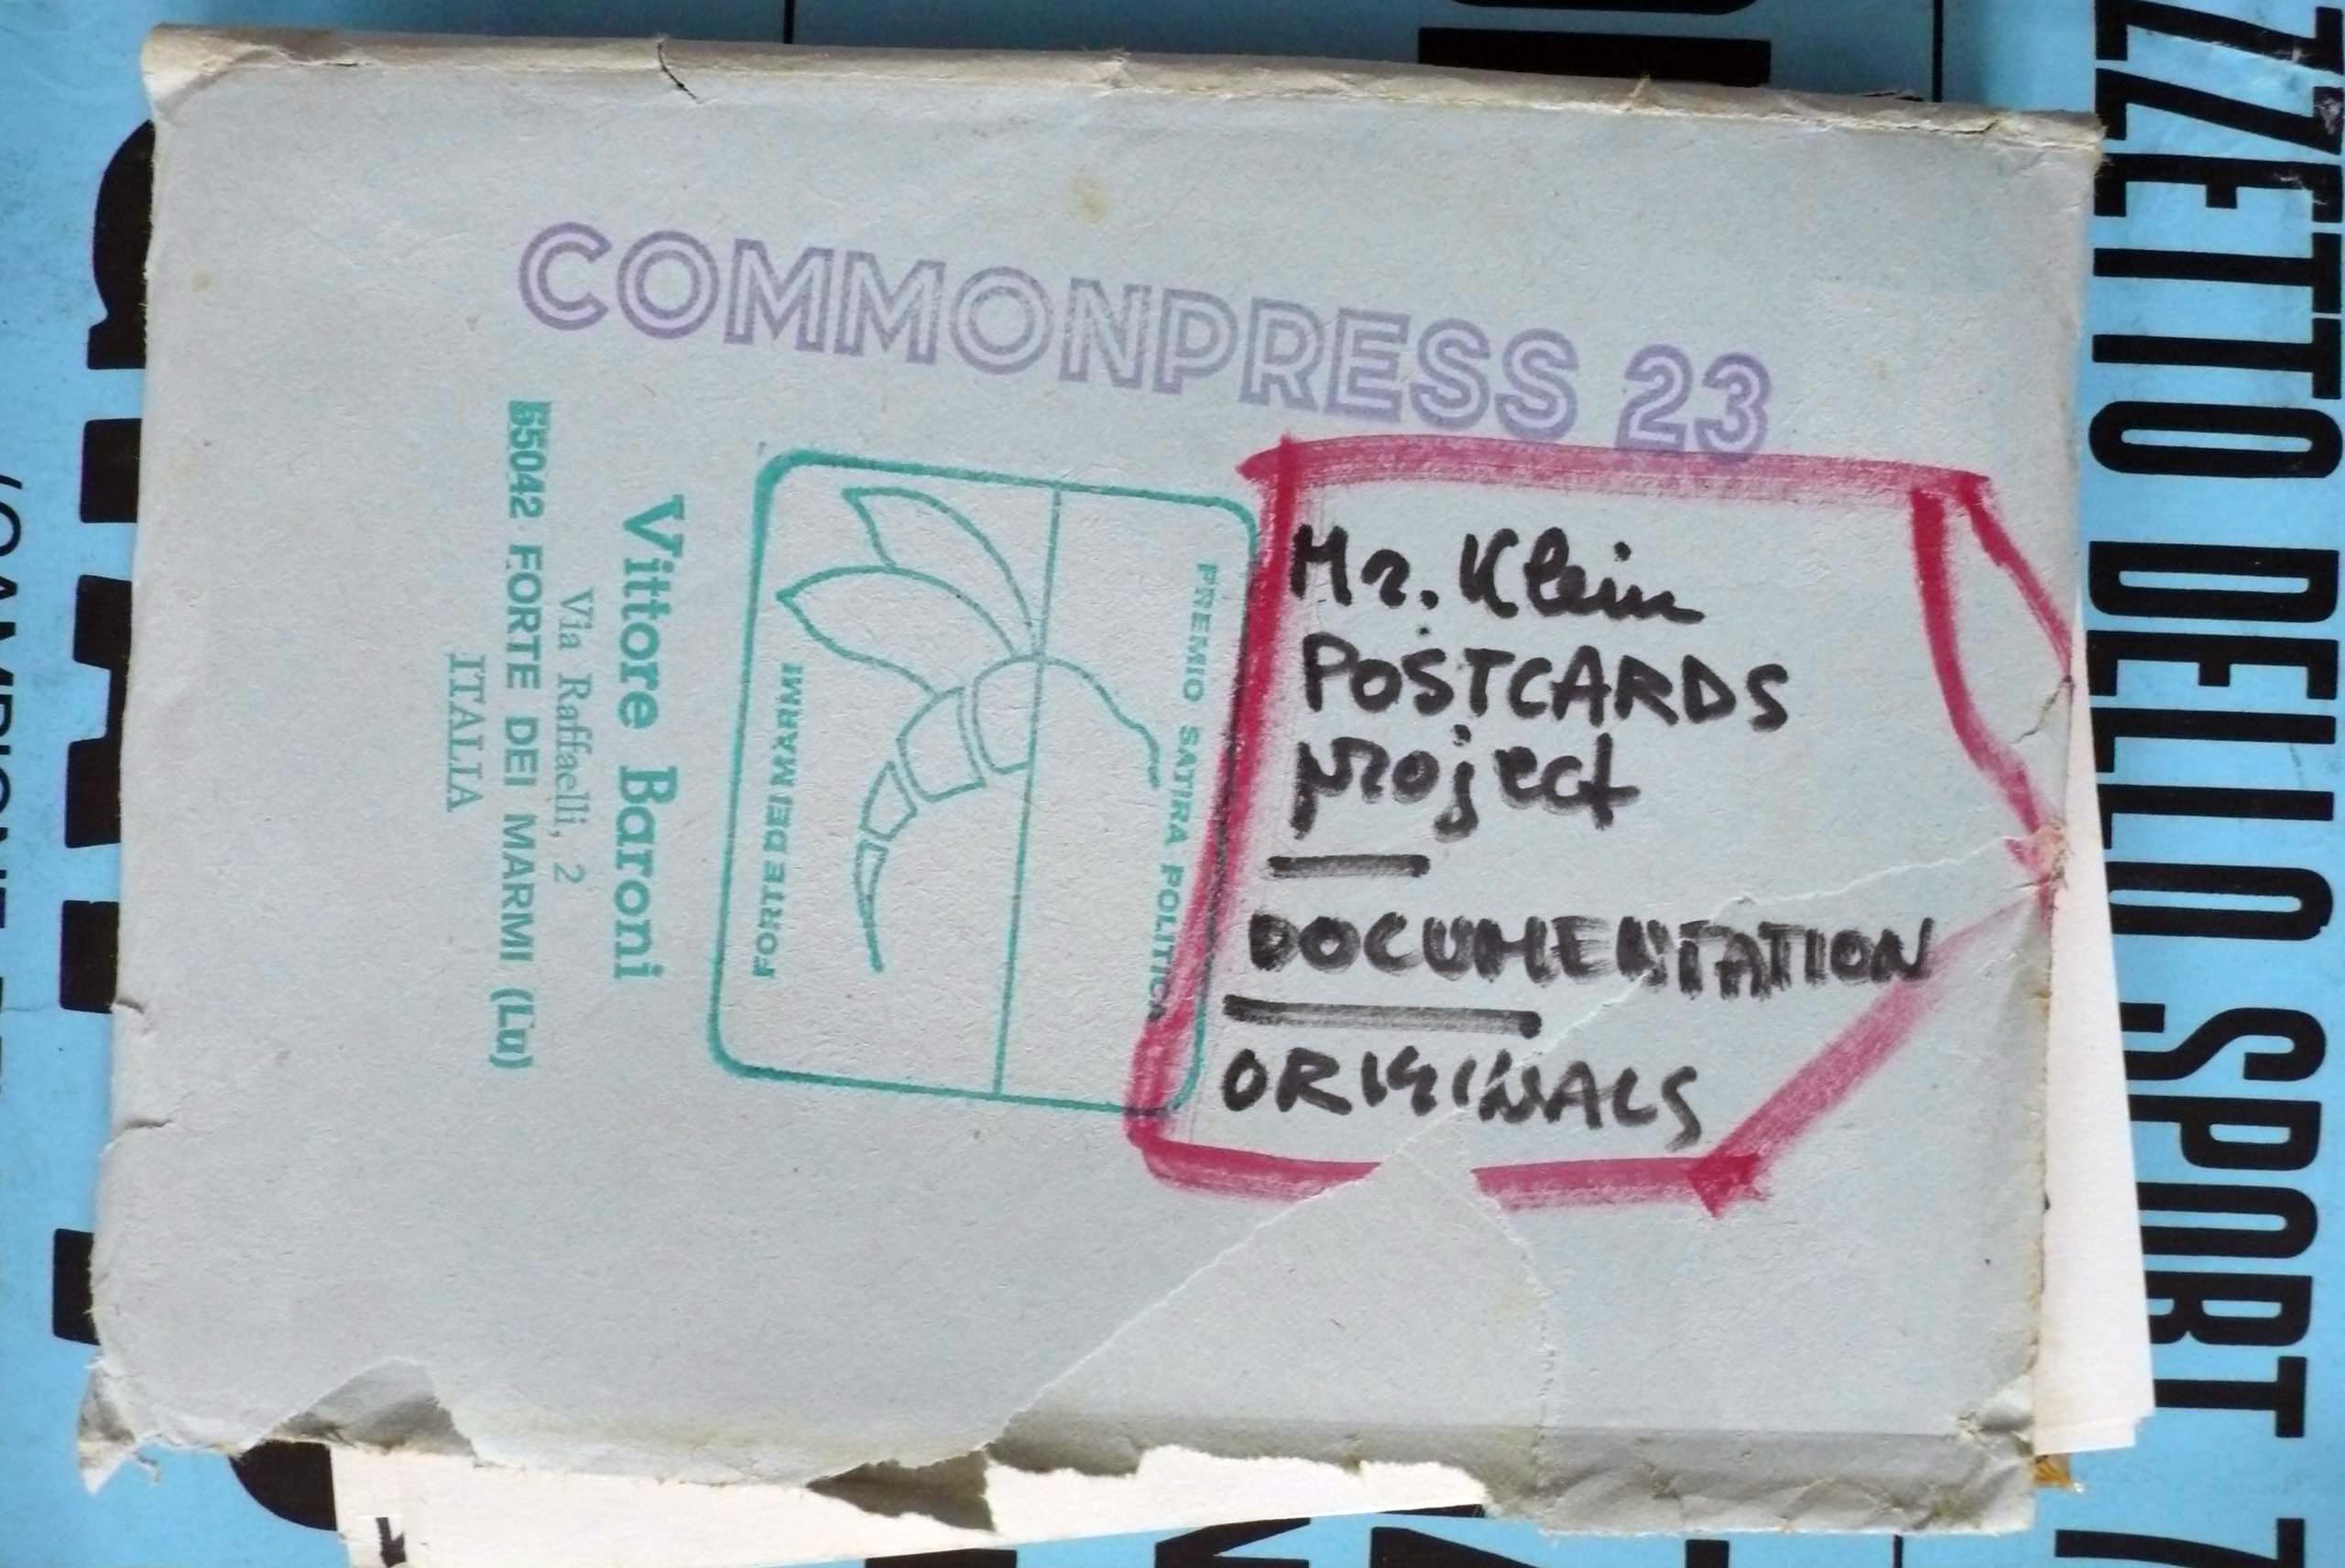 COMMONPRESS 23
Vittore Baroni
Via Raffaelli, 2
55042 FORTE DEI MARMI (Lu)
ITALIA
PREMIO SATIRA POLITICA
FORTE DEI MARMI
Mr. Klein
POSTCARDS
project
DOCUMENTATION
ORIGINALS
ZZETTO DELLO SPORT 7